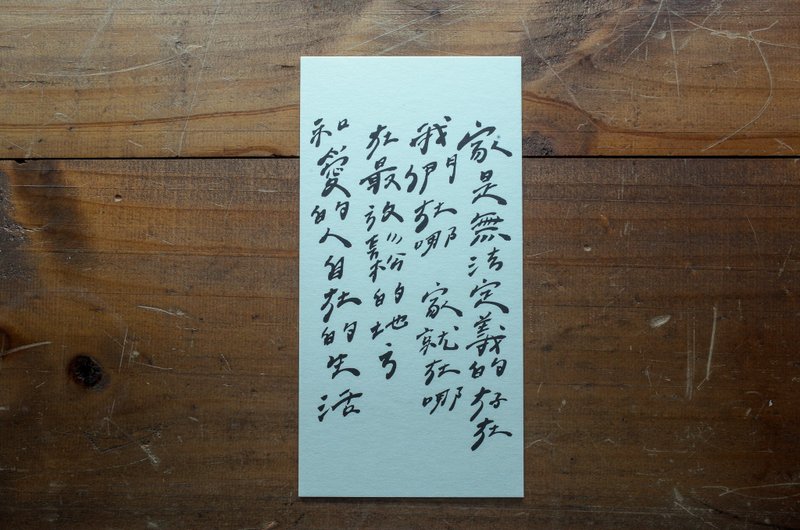 家是無法定義的存在
我們在哪 家就在哪
在最放鬆的地方
和愛的人自在的生活